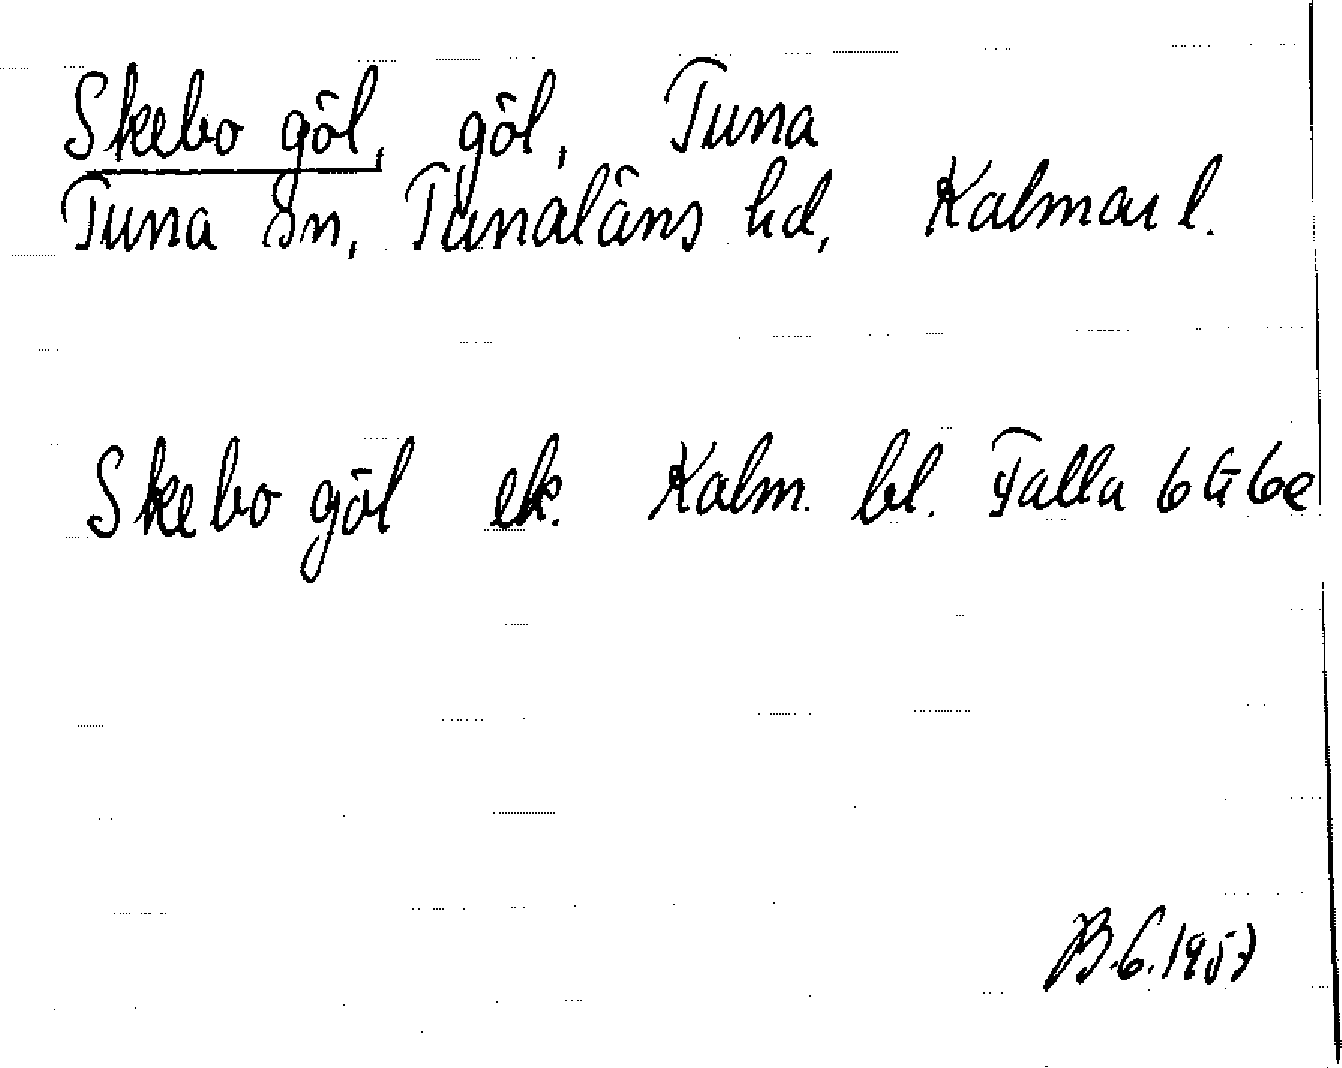 Skebo göl, göl, Tuna
Tuna sn, Tunaläns hd, Kalmar l.
Skebo göl ek. Kalm. bl. Falla 6 G 6e
B.G. 1957